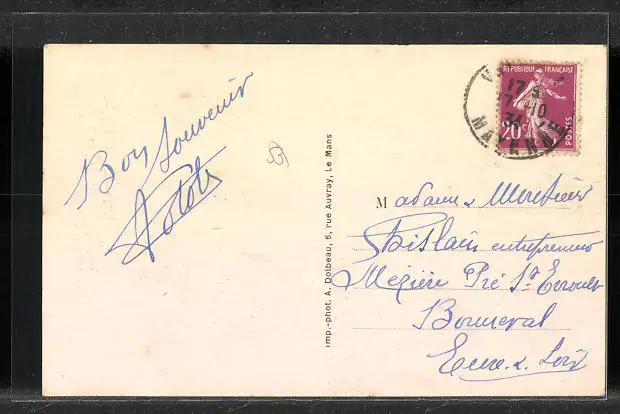 Bon Souvenir
Totote
Imp.-phot. A. Dolbeau, 6, rue Auvray, Le Mans
RÉPUBLIQUE FRANÇAISE
20c
POSTES
17
7-10
34
MAYENNE
Madame & Monsieur
Ghislain entrepreneur
Mézière Pré St
Bonneval
Eure & Loir